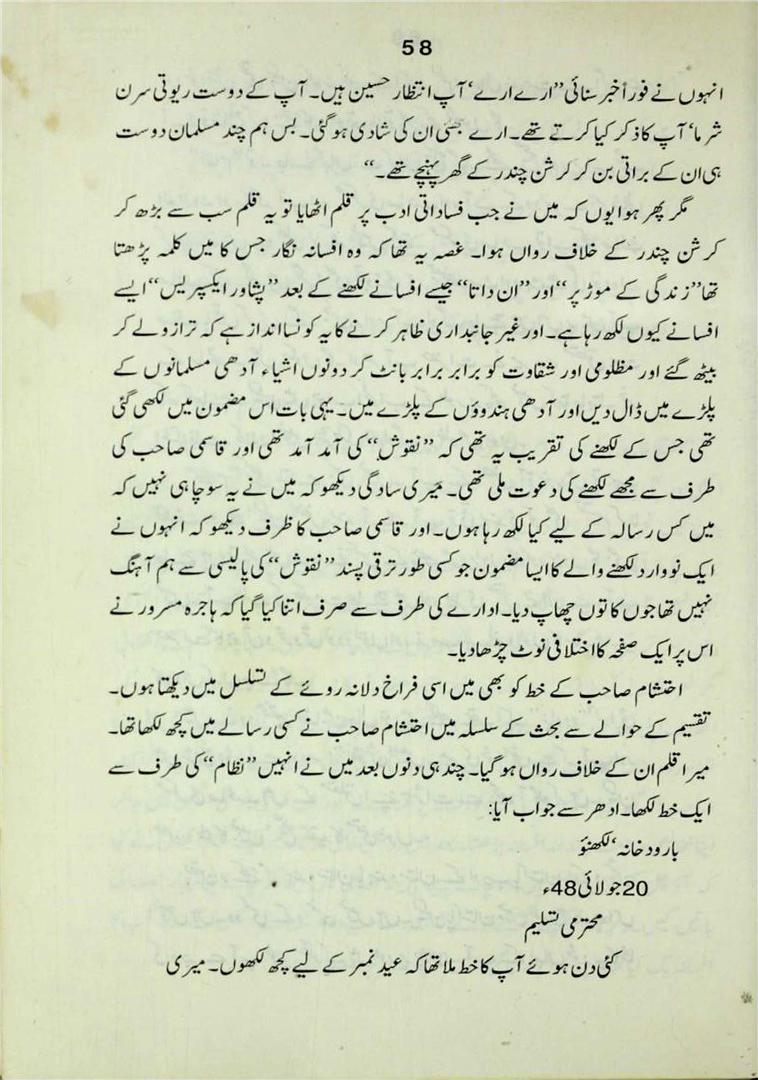 58
انہوں نے فوراً خبر سنائی ”ارے ارے‘ آپ انتظار حسین ہیں۔ آپ کے دوست ریوتی سرن
شرما‘ آپ کا ذکر کیا کرتے تھے۔ ارے بھئی ان کی شادی ہو گئی۔ بس ہم چند مسلمان دوست
ہی ان کے براتی بن کر کرشن چندر کے گھر پہنچے تھے۔“
مگر پھر ہوا یوں کہ میں نے جب فساداتی ادب پر قلم اٹھایا تو یہ قلم سب سے بڑھ کر
کرشن چندر کے خلاف رواں ہوا۔ غصہ یہ تھا کہ وہ افسانہ نگار جس کا میں کلمہ پڑھتا
تھا ”زندگی کے موڑ پر“ اور ”ان داتا“ جیسے افسانے لکھنے کے بعد ”پشاور ایکسپریس“ ایسے
افسانے کیوں لکھ رہا ہے۔ اور غیر جانبداری ظاہر کرنے کا یہ کونسا انداز ہے کہ ترازو لے کر
بیٹھ گئے اور مظلومی اور شقاوت کو برابر برابر بانٹ کر دونوں اشیاء آدھی مسلمانوں کے
پلڑے میں ڈال دیں اور آدھی ہندوؤں کے پلڑے میں۔ یہی بات اس مضمون میں لکھی گئی
تھی جس کے لکھنے کی تقریب یہ تھی کہ ”نقوش“ کی آمد آمد تھی اور قاسمی صاحب کی
طرف سے مجھے لکھنے کی دعوت ملی تھی۔ میری سادگی دیکھو کہ میں نے یہ سوچا ہی نہیں کہ
میں کس رسالہ کے لیے کیا لکھ رہا ہوں۔ اور قاسمی صاحب کا ظرف دیکھو کہ انہوں نے
ایک نووارد لکھنے والے کا ایسا مضمون جو کسی طور ترقی پسند ”نقوش“ کی پالیسی سے ہم آہنگ
نہیں تھا جوں کا توں چھاپ دیا۔ ادارے کی طرف سے صرف اتنا کیا گیا کہ ہاجرہ مسرور نے
اس پر ایک صفحہ کا اختلافی نوٹ چڑھا دیا۔
احتشام صاحب کے خط کو بھی میں اسی فراخ دلانہ روئے کے تسلسل میں دیکھتا ہوں۔
تقسیم کے حوالے سے بحث کے سلسلہ میں احتشام صاحب نے کسی رسالے میں کچھ لکھا تھا۔
میرا قلم ان کے خلاف رواں ہو گیا۔ چند ہی دنوں بعد میں نے انہیں ”نظام“ کی طرف سے
ایک خط لکھا۔ ادھر سے جواب آیا:
بارود خانہ‘ لکھنؤ
20 جولائی 48ء
محترمی تسلیم
کئی دن ہوئے آپ کا خط ملا تھا کہ عید نمبر کے لیے کچھ لکھوں۔ میری